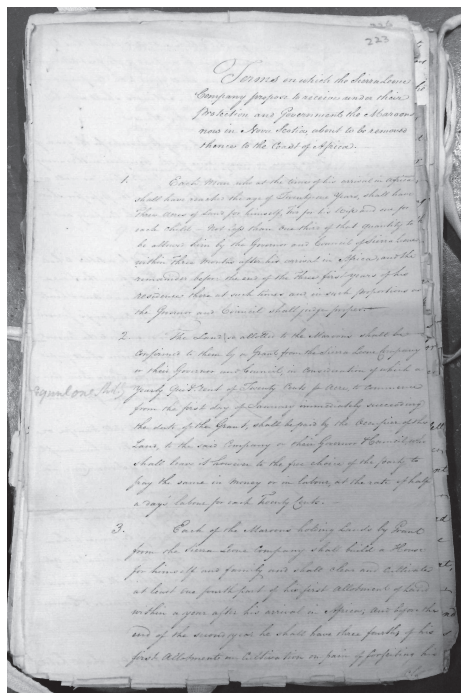 223
Terms on which the Sierra Leone
Company propose to receive under their
Protection and Government the Maroons
now in Nova Scotia about to be removed
thence to the Coast of Africa.
1. Each Man who at the time of his arrival in Africa
shall have reached the age of Twenty one Years, shall have
Three Acres of Land for himself, two for his Wife and one for
each Child – Not less than one third of that quantity to
be allowed him by the Governor and Council of Sierra Leone
within Three Months after his arrival in Africa and the
remainder before the end of the Three first years of his
residence there at such times and in such proportions as
the Governor and Council shall judge proper
2 The Land so allotted to the Maroons shall be
confirmed to them by a Grant from the Sierra Leone Company
or their Governor and Council, in consideration of which a
Yearly Quit Rent of Twenty Cents Acre to commence
from the first day of January immediately succeeding
the date of the Grant, shall be paid by the Occupier of the
Land, to the said Company or their Governor & Council, who
shall leave it however to the free choice of the party to
pay the same in money or in labour, at the rate of half
a day's labour for each Twenty Cents. –
3. Each of the Maroons holding Lands by Grant
from the Sierra Leone Company shall build a House
for himself and family and shall clear and cultivate
at least one fourth part of his first allotment of Land
within a year after his arrival in Africa; and before the
end of the second year he shall have three fourths of his
first Allotment in Cultivation on pain of forfeiting his